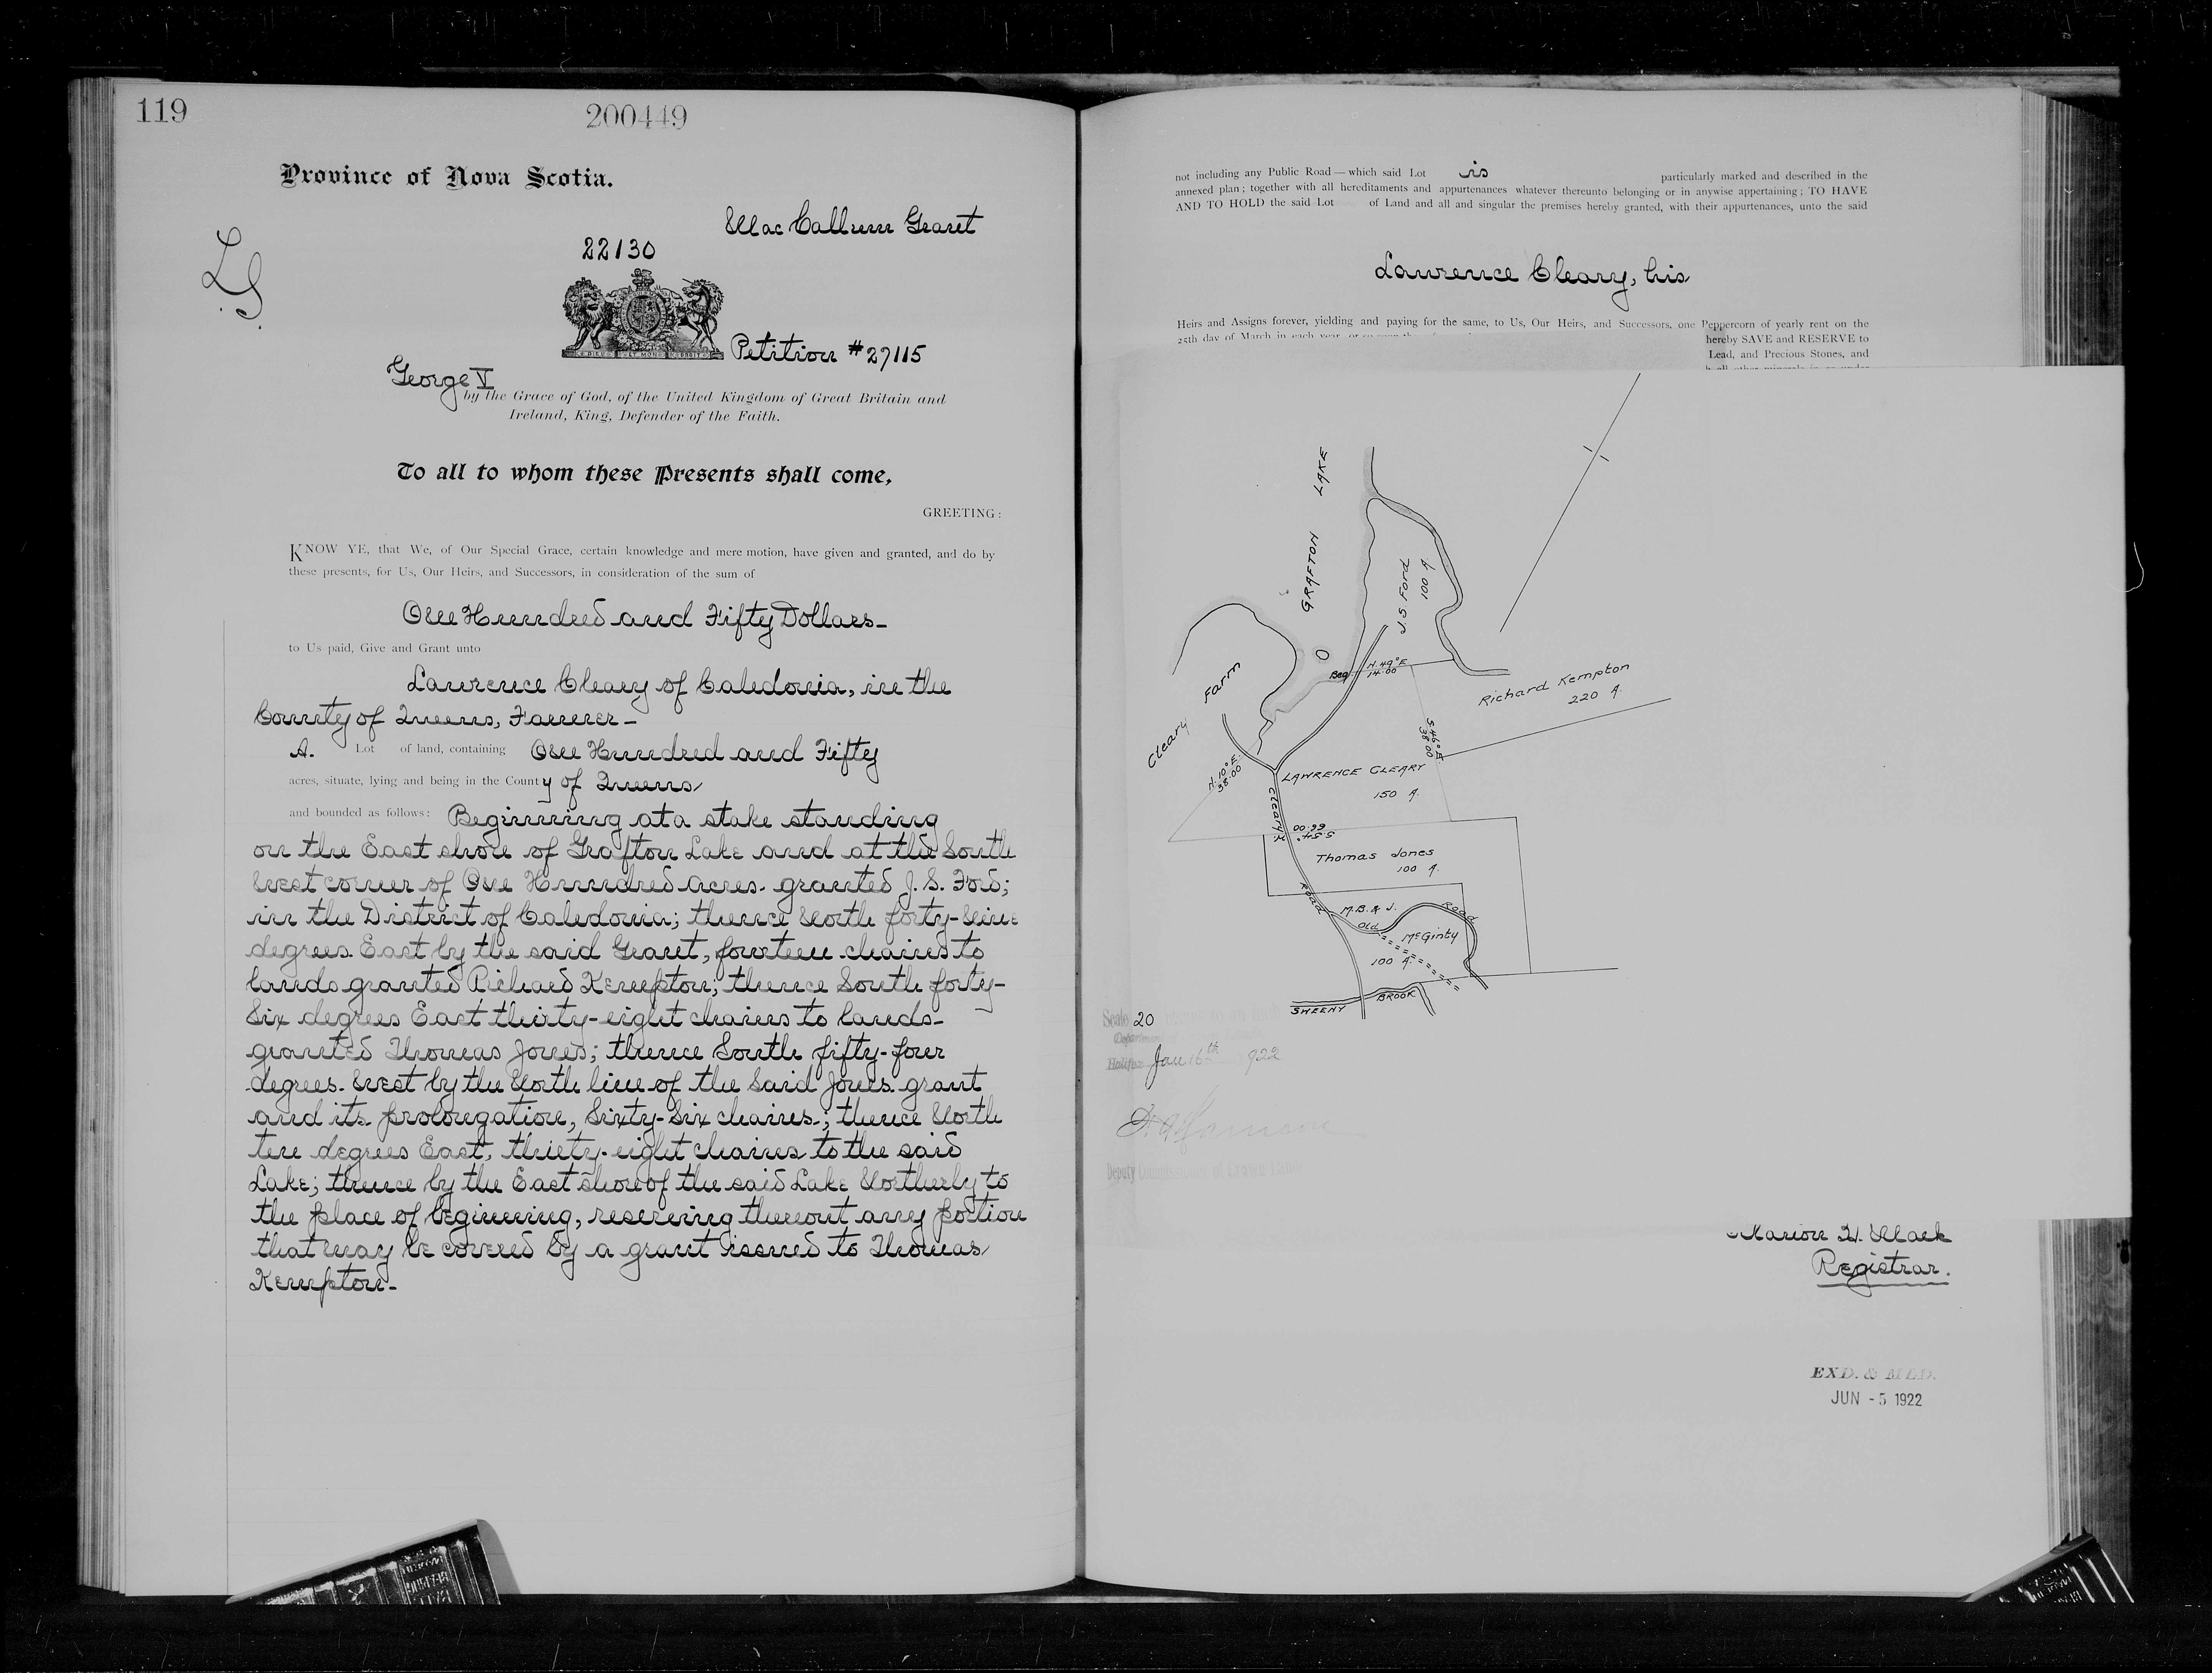 119
200449
Province of Nova Scotia.
MacCallum Grant
22130
L.S.
DIEU ET MON DROIT
Petition #27115
George V
by the Grace of God, of the United Kingdom of Great Britain and
Ireland, King, Defender of the Faith.
To all to whom these Presents shall come,
GREETING:
KNOW YE, that We, of Our Special Grace, certain knowledge and mere motion, have given and granted, and do by
these presents, for Us, Our Heirs, and Successors, in consideration of the sum of
One Hundred and Fifty Dollars-
to Us paid, Give and Grant unto
Lawrence Cleary of Caledonia, in the
County of Queens, Farmer-
A. Lot of land, containing One Hundred and Fifty
acres, situate, lying and being in the County of Queens
and bounded as follows: Beginning at a stake standing
on the East shore of Grafton Lake and at the South
West corner of One Hundred acres granted J. S. Ford;
in the District of Caledonia; thence North forty-nine
degrees East by the said Grant, fourteen chains to
lands granted Richard Kempton; thence South forty-
six degrees East thirty-eight chains to lands
granted Thomas Jones; thence South fifty-four
degrees West by the North line of the said Jones grant
and its prolongation, Sixty-Six chains; thence North
ten degrees East, thirty-eight chains to the said
Lake; thence by the East shore of the said Lake Northerly to
the place of beginning, reserving thereout any portion
that may be covered by a grant issued to Thomas
Kempton-
not including any Public Road — which said Lot is particularly marked and described in the
annexed plan; together with all hereditaments and appurtenances whatever thereunto belonging or in anywise appertaining; TO HAVE
AND TO HOLD the said Lot of Land and all and singular the premises hereby granted, with their appurtenances, unto the said
Lawrence Cleary, his
Heirs and Assigns forever, yielding and paying for the same, to Us, Our Heirs, and Successors, one Peppercorn of yearly rent on the
25th day of March in each year, or so soon
hereby SAVE and RESERVE to
Lead, and Precious Stones, and
all other minerals in or under
GRAFTON LAKE
J. S. Ford
100 A.
Cleary Farm
Beg.
N. 49° E.
14.00
Richard Kempton
220 A.
S. 46° E.
38.00
N. 10° E.
38.00
LAWRENCE CLEARY
150 A.
Cleary's
S. 54°
66.00
Thomas Jones
100 A.
Road
M. B. & J.
Old Road
McGinty
100 A.
SHEENY BROOK
Scale 20
Halifax Jan 16th 1922
Deputy Commissioner of Crown Lands
Registrar.
EXD. & M'L'D.
JUN - 5 1922